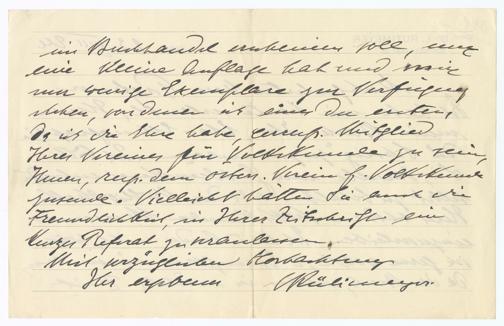 im Buchhandel erscheinen soll, nur
eine kleine Auflage hat und mir
nur wenige Exemplare zur Verfügung
stehen, von denen ich eines der ersten,
da ich die Ehre habe, corresp. Mitglied
Ihres Vereines für Volkskunde zu sein,
Ihnen, resp. dem österr. Verein f. Volkskunde
zusende. Vielleicht hätten Sie auch die
Freundlichkeit, in Ihrer Zeitschrift ein
kurzes Referat zu veranlassen.
Mit vorzüglicher Hochachtung
Ihr ergebener Rütimeyer.